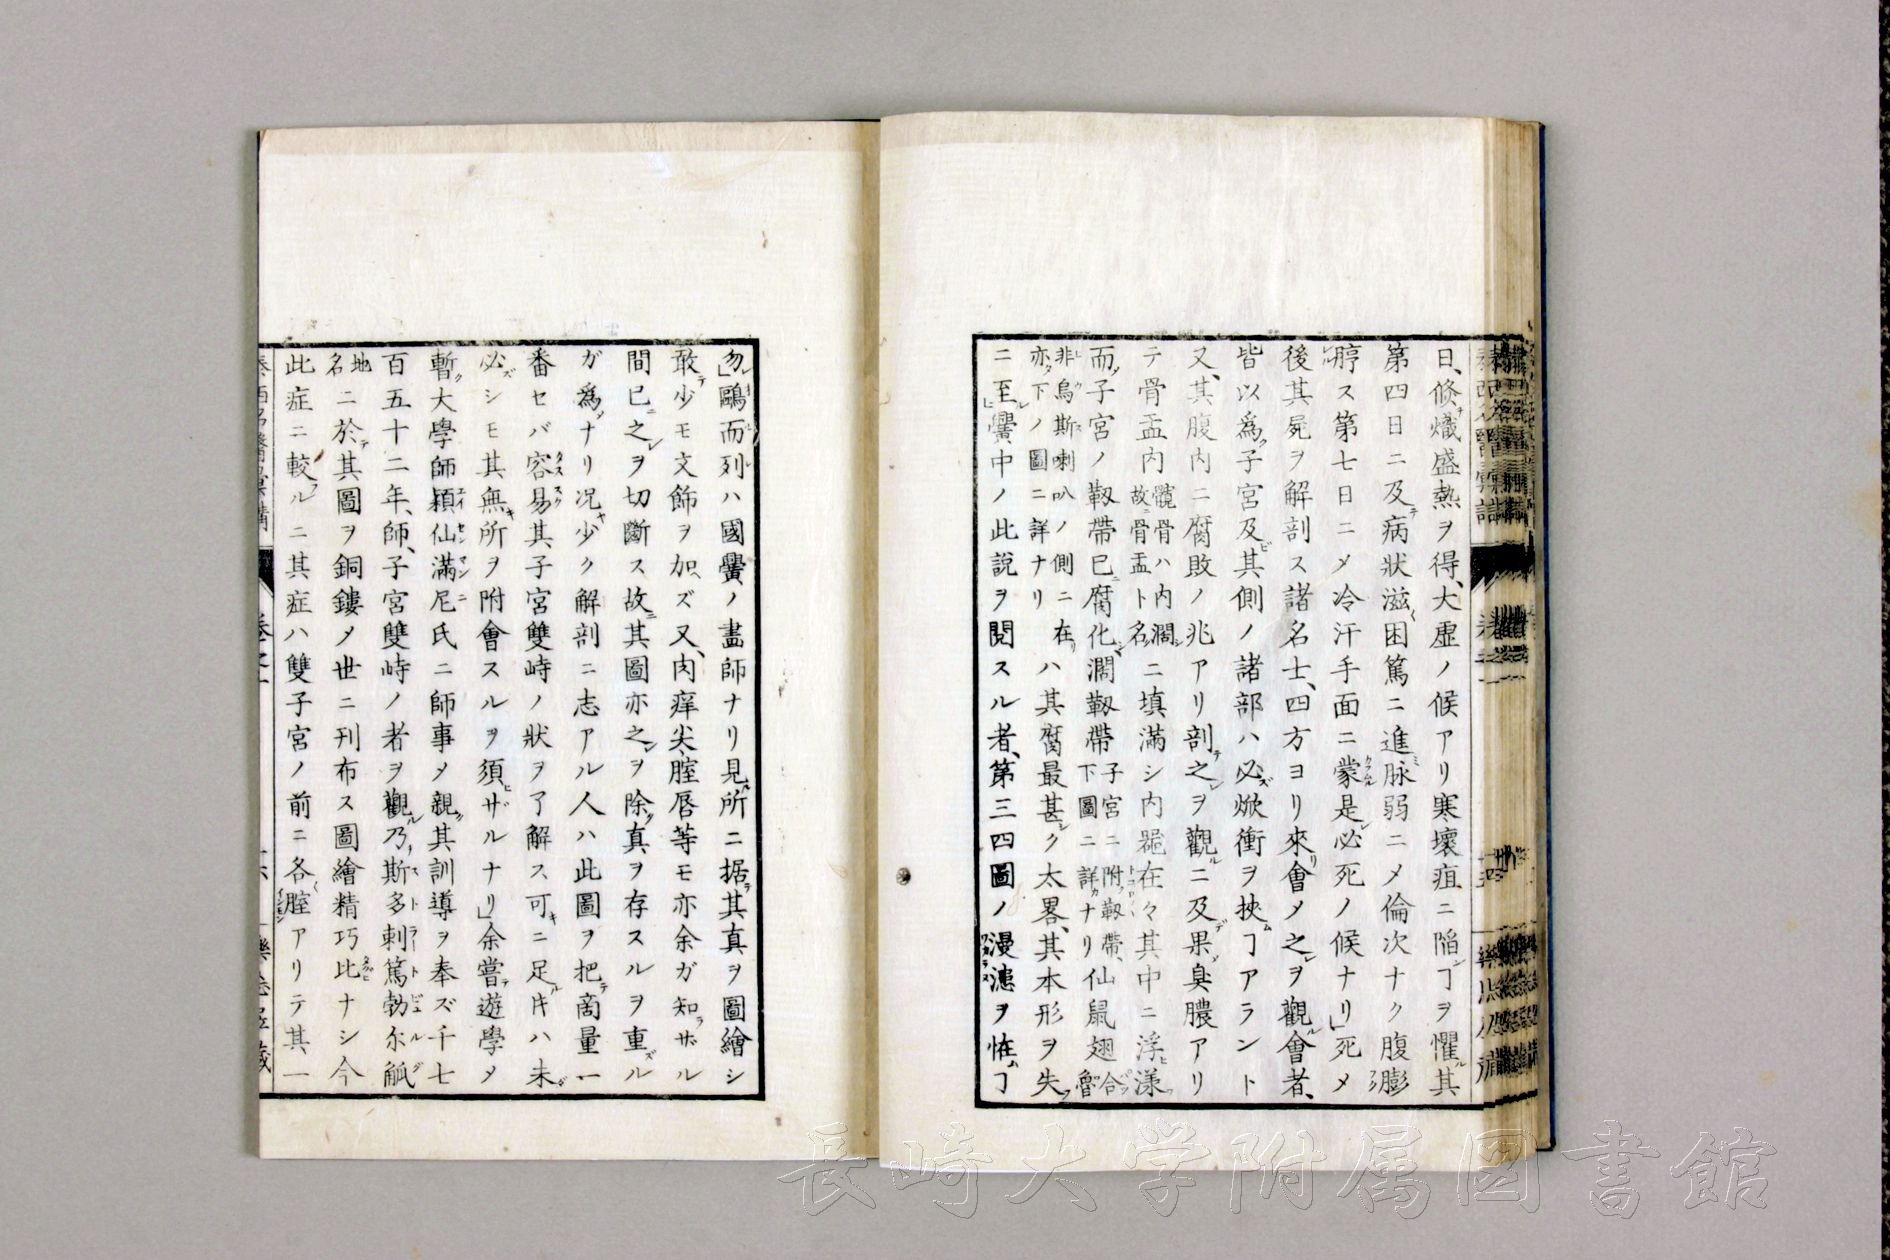 日、倏熾盛熱ヲ得、大虚ノ候アリ寒壊疽ニ陥ンヿヲ懼ル其
第四日ニ及テ病狀滋〱困篤ニ進ミ脉弱ニメ倫次ナク腹膨
脝ス第七日ニメ冷汗手面ニ蒙ル是レ必死ノ候ナリ」死メ
後其屍ヲ解剖ス諸名士、四方ヨリ來リ會メ之レヲ觀ル會者、
皆以爲ク子宮及ビ其側ノ諸部ハ必ズ焮衝ヲ挾ムヿアラント
又、其腹内ニ腐敗ノ兆アリ剖テ之レヲ觀ルニ及デ果ノ臭膿アリ
テ骨盂内髖骨ハ内濶シ故ニ骨盂ト名ニ填滿シ内噐在々其中ニ浮ヒ漾フ
而ノ子宮ノ靱帶已ニ腐化シ濶靱帶子宮ニ附ク靱帶、下圖ニ詳カナリ仙鼠翅合ハツ魯
非烏斯喇叭ノ側ニ在リ亦タ下ノ圖ニ詳ナリハ其腐最甚シク太畧、其本形ヲ失フ
ニ至レヒ黌中ノ此説ヲ閲スル者、第三四圖ノ漫漶ヲ恠ムヿ
勿レ」鷗而列ハ國黌ノ畫師ナリ見ル所ニ据テ其真ヲ圖繪シ
敢テ少モ文飾ヲ加ヘズ又、肉痒尖、腟唇等モ亦余ガ知ラザル
間已ニ之レヲ切斷ス故ニ其圖亦之レヲ除ク真ヲ存スルヲ重ズル
ガ爲ノナリ况ヤ少ク解剖ニ志アル人ハ此圖ヲ把テ商量一
番セバ容易ク其子宮雙峙ノ狀ヲ了解ス可キニ足ル片ハ未ダ
必ズシモ其無キ所ヲ附會スルヲ須ヒザルナリ」余嘗テ遊學メ
暫ク大學師穎仙滿尼氏ニ師事メ親ク其訓導ヲ奉ズ千七
百五十二年、師、子宮雙峙ノ者ヲ觀ル乃ノ斯多剌篤勃尓觚
地名ニ於テ其圖ヲ銅鏤メ世ニ刊布ス圖繪精巧比ナシ今
此症ニ較フルニ其症ハ雙子宮ノ前ニ各〱腟アリテ其一
長崎大学附属図書館